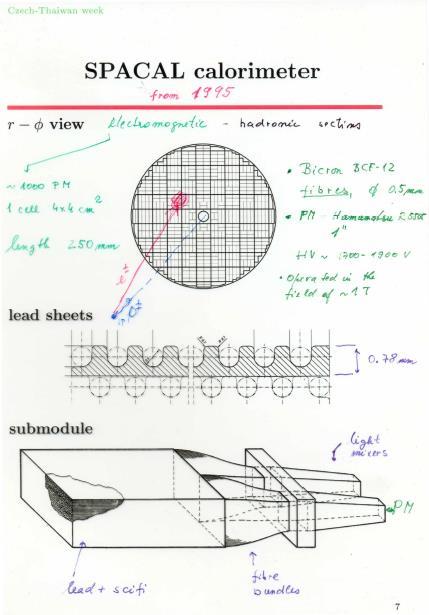 Czech-Thaiwan week
SPACAL calorimeter
from 1995
r − ϕ view
Electromagnetic - hadronic sections
~ 1000 PM
1 cell 4x4 cm²
length 250 mm
• Bicron BCF-12
fibres, ϕ 0.5 mm
• PM - Hamamatsu
1"
HV ~ 1700-1900 V
• Operated in the
field of ~ 1T
e±
lead sheets
0.78 mm
submodule
light
mixers
PM
lead + scifi
fibre
bundles
7